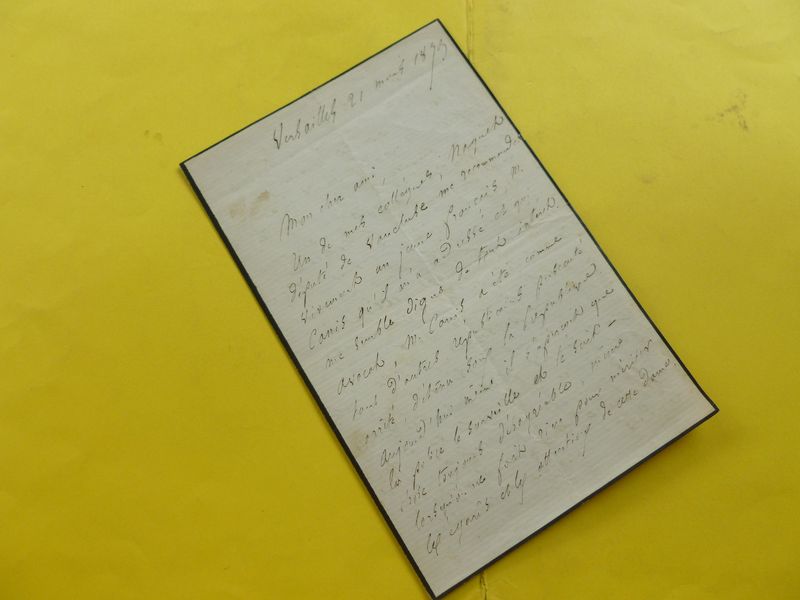 Versailles 21 mars 1873
Mon cher ami,
Un de mes collègues, Naquet
député de Vaucluse me recommande
vivement un jeune français, M.
Canis qu'il m'a adressé et qui
me semble digne de tout intérêt.
avocat, M. Canis a été comme
tant d'autres républicains persécuté
arrêté, détenu sous la République
aujourd'hui même il s'aperçoit que
la police le surveille et le suit –
chose toujours désagréable, même
lorsqu'on ne fait rien pour mériter
les égards et les attentions de cette dame.